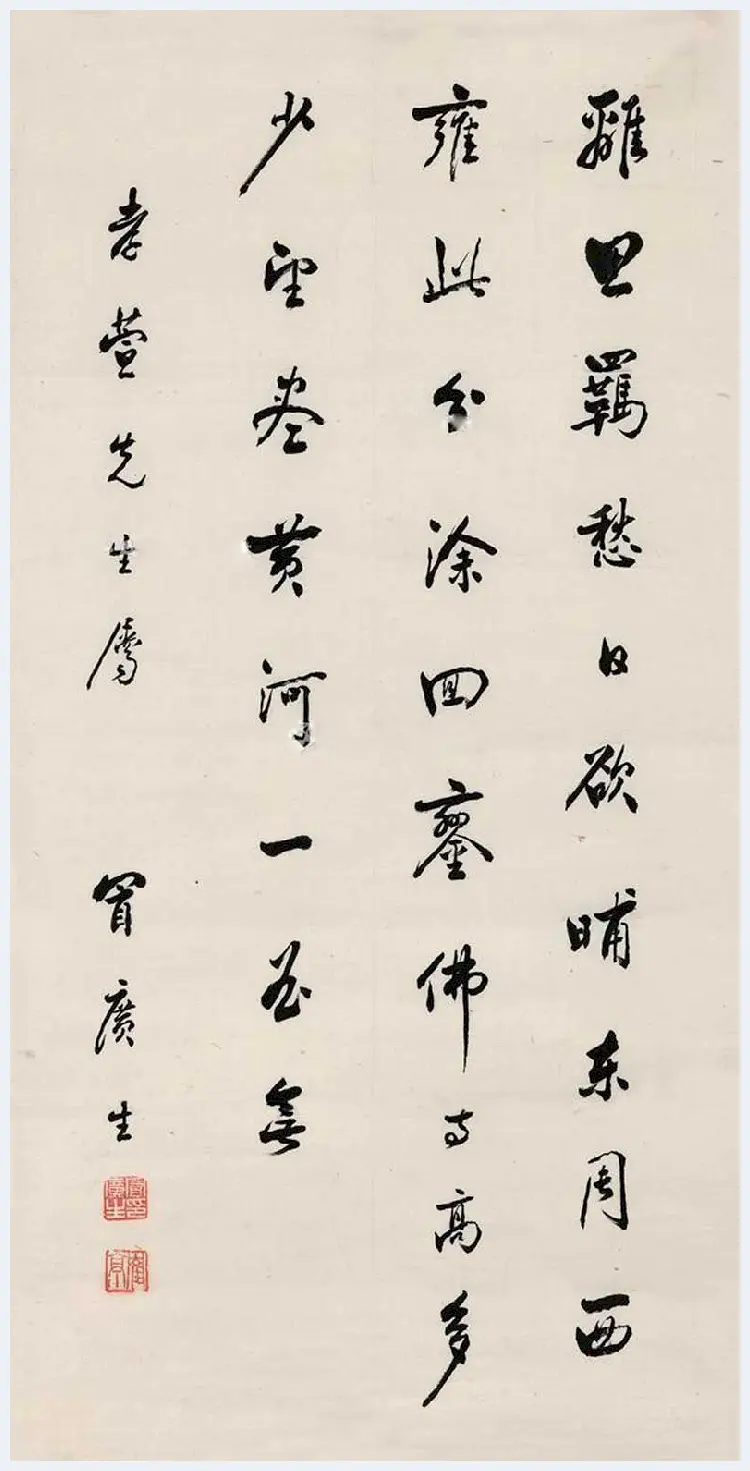 離思羈愁日欲晡東周西
雍此分涂回鑾佛寺高多
少望盡黃河一曲無
孝萱先生屬
冒廣生